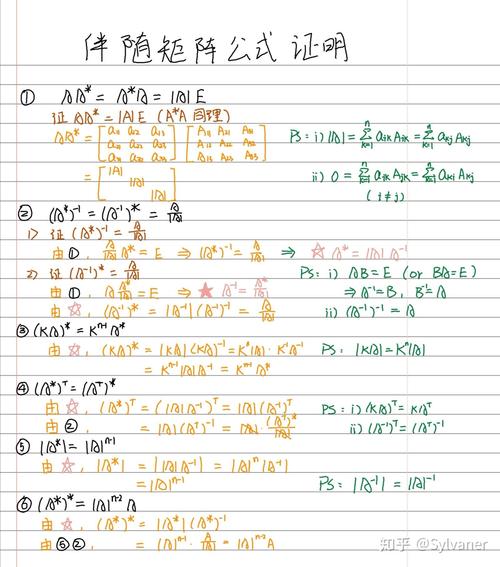 伴随矩阵公式证明
① AA* = A*A = |A|E
证 AA* = |A|E (A*A 同理)
AA* = [a₁₁ a₁₂ a₁₃; a₂₁ a₂₂ a₂₃; a₃₁ a₃₂ a₃₃] [A₁₁ A₂₁ A₃₁; A₁₂ A₂₂ A₃₂; A₁₃ A₂₃ A₃₃] PS: i) |A| = Σₖ₌₁ⁿ aᵢₖAᵢₖ = Σₖ₌₁ⁿ aₖⱼAₖⱼ
= [|A| |A| |A|] ii) 0 = Σₖ₌₁ⁿ aᵢₖAⱼₖ = Σₖ₌₁ⁿ aₖᵢAₖⱼ
(i≠j)
② (A*)⁻¹ = (A⁻¹)* = A/|A|
1) 证 (A*)⁻¹ = A/|A|
由①, A/|A| A* = E ⇒ (A*)⁻¹ = A/|A| ⇒ ☆ A* = |A|A⁻¹
2) 证 (A⁻¹)* = A/|A| PS: i) AB=E (or BA=E)
由①, A A*/|A| = E ⇒ ★ A⁻¹ = A*/|A| ⇒ A⁻¹=B, B⁻¹=A
由☆, (A⁻¹)* = |A⁻¹|(A⁻¹)⁻¹ = A/|A| ii) (A⁻¹)⁻¹ = A
③ (KA)* = Kⁿ⁻¹A*
由☆, (KA)* = |KA|(KA)⁻¹ = Kⁿ|A|·K⁻¹A⁻¹ PS: |KA| = Kⁿ|A|
= Kⁿ⁻¹|A|A⁻¹ = Kⁿ⁻¹A*
④ (A*)ᵀ = (Aᵀ)*
由☆, (A*)ᵀ = (|A|A⁻¹)ᵀ = |A|(A⁻¹)ᵀ PS: i) (KA)ᵀ = KAᵀ
由②, = |A|(Aᵀ)⁻¹ = |A|·(Aᵀ)*/|A| ii) (A⁻¹)ᵀ = (Aᵀ)⁻¹
⑤ |A*| = |A|ⁿ⁻¹
由☆, |A*| = ||A|A⁻¹| = |A|ⁿ|A⁻¹|
= |A|ⁿ⁻¹ PS: |A⁻¹| = |A|⁻¹
⑥ (A*)* = |A|ⁿ⁻²A
由☆, (A*)* = |A*|(A*)⁻¹
由⑤② = |A|ⁿ⁻¹·A/|A| = |A|ⁿ⁻²A
知乎 @Sylvaner